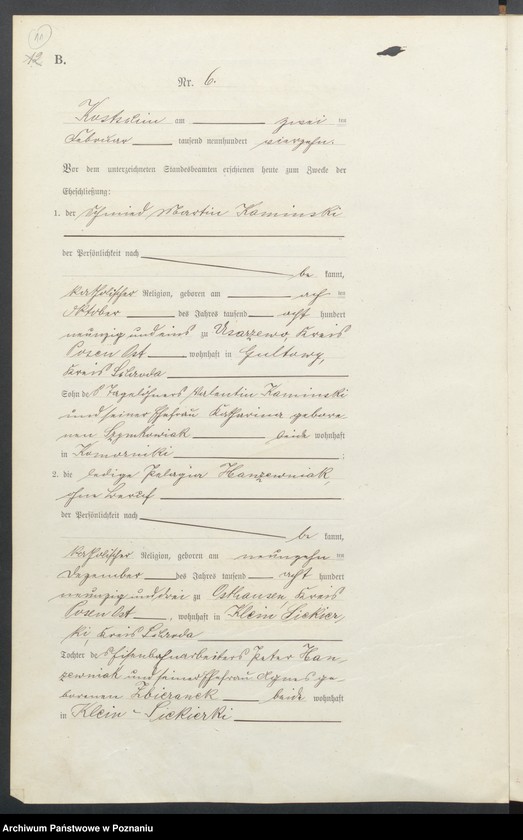 12 B.
Nr. 6.
Kostschin am zwei ten
Februar tausend neunhundert vierzehn.
Vor dem unterzeichneten Standesbeamten erschienen heute zum Zwecke der
Eheschließung:
1. der Schmied Martin Kaminski
der Persönlichkeit nach
be kannt,
katholischer Religion, geboren am acht en
Oktober des Jahres tausend acht hundert
neunzig und eins zu Uzarzewo, Kreis
Posen Ost wohnhaft in Gultowy,
Kreis Schroda
Sohn des Tagelöhners Valentin Kaminski
und seiner Ehefrau Katharina gebore
nen Szymkowiak beide wohnhaft
in Komornicki ;
2. die ledige Pelagia Hanzewniak,
ohne Beruf
der Persönlichkeit nach
be kannt,
katholischer Religion, geboren am neunzehn ten
Dezember des Jahres tausend acht hundert
neunzig und drei zu Kreis
Posen Ost, wohnhaft in Klein Siekier-
ki, Kreis Schroda
Tochter des Eisenbahnarbeiters Peter Han-
zewniak und seiner Ehefrau Agnes ge-
borenen Zbieranek beide wohnhaft
in Klein-Siekierki
Archiwum Państwowe w Poznaniu